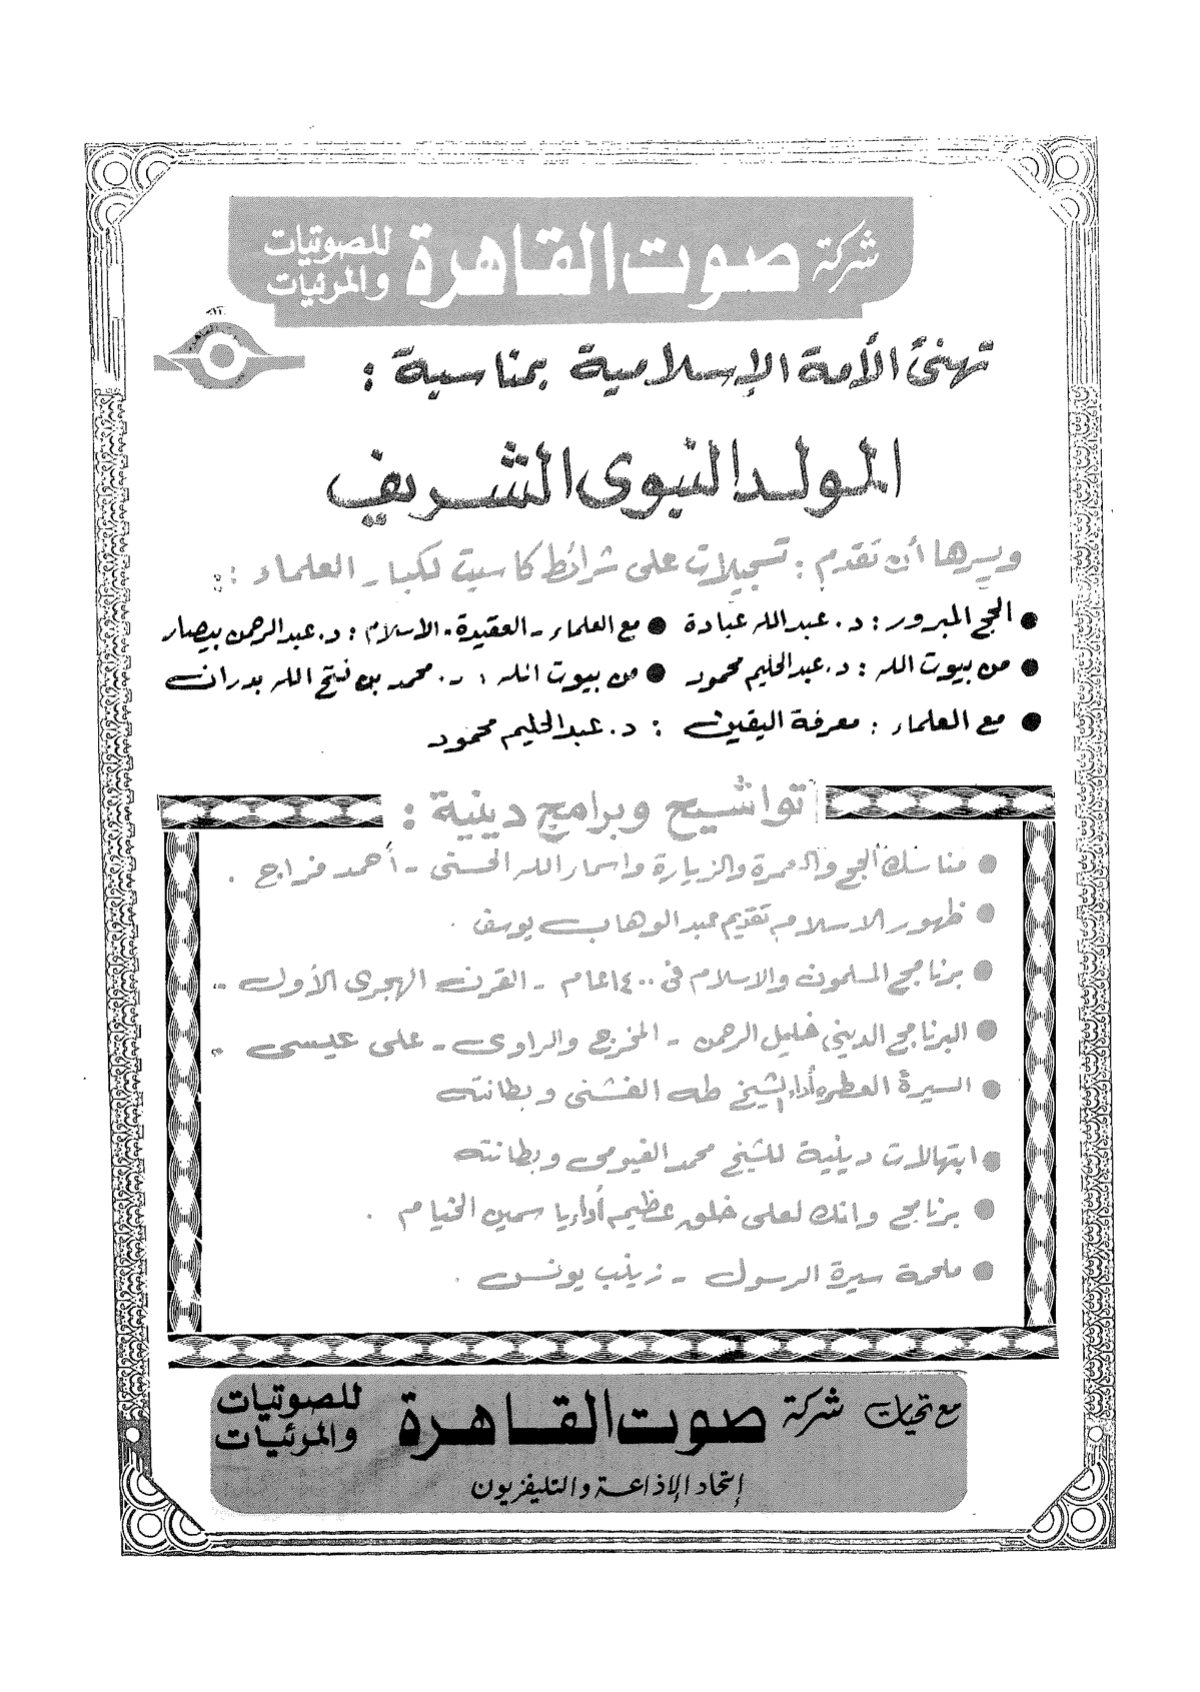 شركة صوت القاهرة للصوتيات والمرئيات
تهنئ الأمة الإسلامية بمناسبة :
المولد النبوى الشريف
ويسرها أن تقدم : تسجيلات على شرائط كاسيت لكبار العلماء :
● الحج المبرور : د. عبدالله عبادة ● مع العلماء - العقيدة - الاسلام : د. عبدالرحمن بيصار
● من بيوت الله : د. عبدالحليم محمود ● من بيوت الله : د. محمد بن فتح الله بدران
● مع العلماء : معرفة اليقين : د. عبدالحليم محمود
تواشيح وبرامج دينية :
● مناسك الحج والعمرة والزيارة واسماء الله الحسنى - أحمد فراج .
● ظهور الاسلام تقديم عبد الوهاب يوسف .
● برنامج المسلمون والاسلام فى ١٤٠٠ عام - القرن الهجرى الأول -
● البرنامج الدينى خليل الرحمن - المخرج والراوى - على عيسى .
● السيرة العطره أداء الشيخ طه الفشنى وبطانته
● ابتهالات دينية للشيخ محمد الفيومى وبطانته
● برنامج وانك لعلى خلق عظيم أداء ياسمين الخيام .
● ملحمة سيرة الرسول - زينب يونس .
مع تحيات شركة صوت القاهرة للصوتيات والمرئيات
إتحاد الإذاعة والتليفزيون